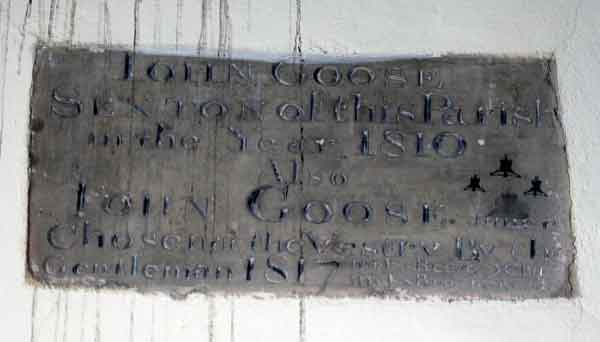 JOHN GOOSE
SEXTON of this Parish
in the Year 1810
Also
JOHN GOOSE
Chosen at the Vestry By the
Gentleman 1817